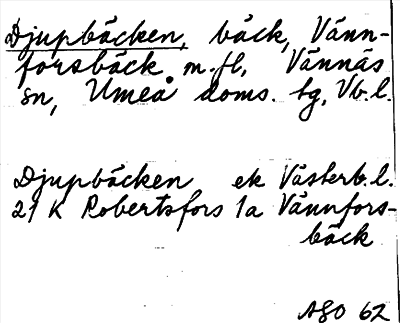 Djupbäcken, bäck, Vänn-
forsbäck m.fl, Vännäs
sn, Umeå doms. tg, Vb.l.
Djupbäcken ek Västerb.l.
21 K Robertsfors 1a Vännfors-
bäck
ASO 62